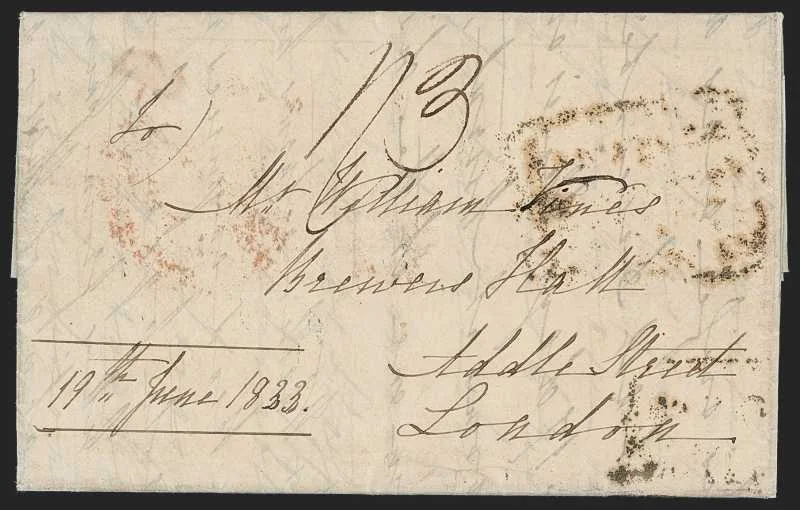 To
1/3
Mr William Vines
Brewers Hall
Addle Street
London
19th June 1833.